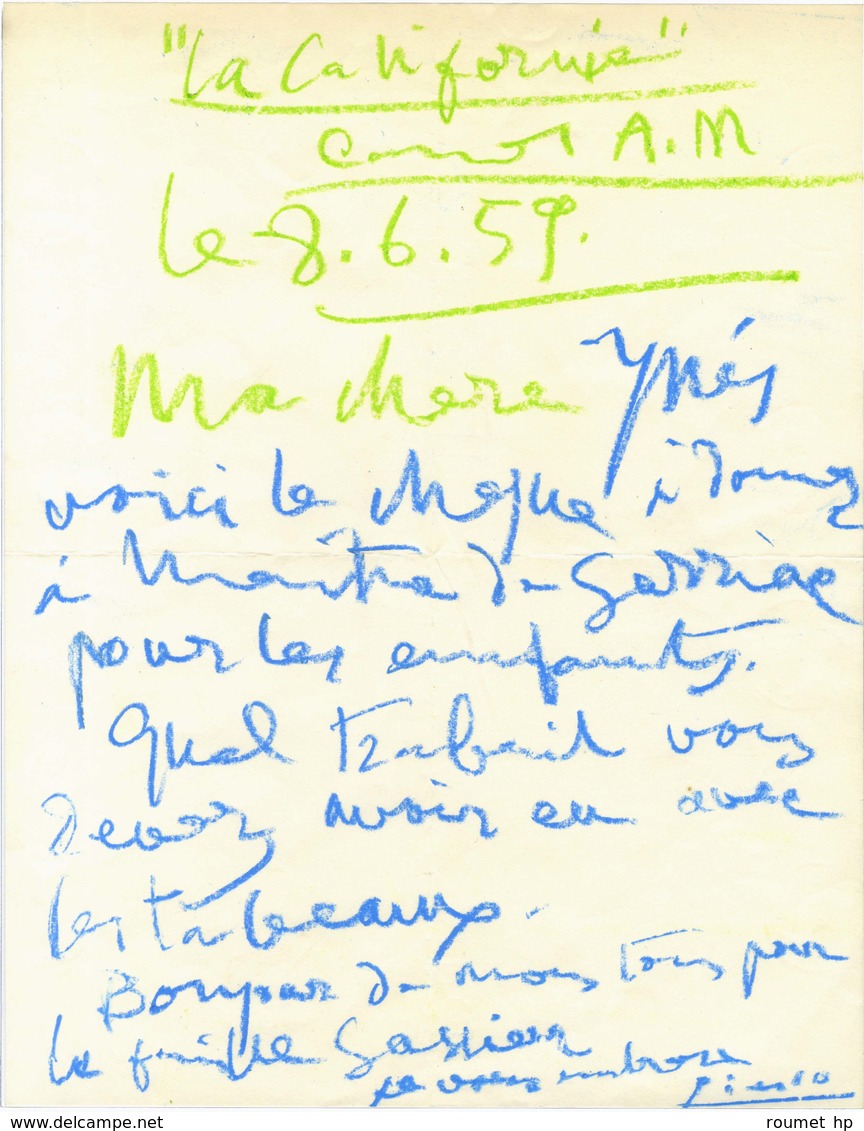 "La Californie"
Cannes A.M
le 8.6.59.
Ma chere Ynés
voici le cheque à donner
à Maitre de Sarriac
pour les enfants.
Quel trabail vous
devez avoir eu avec
les tableaux.
Bonjour de nous tous pour
la famille Sassier
je vous embrasse
Picasso
roumet hp